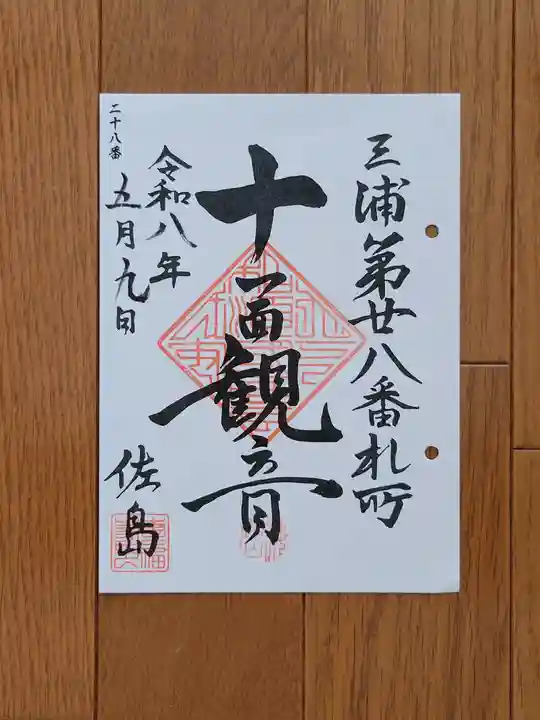 三浦第廿八番札所
十一面観音
令和八年
五月九日
佐島
二十八番